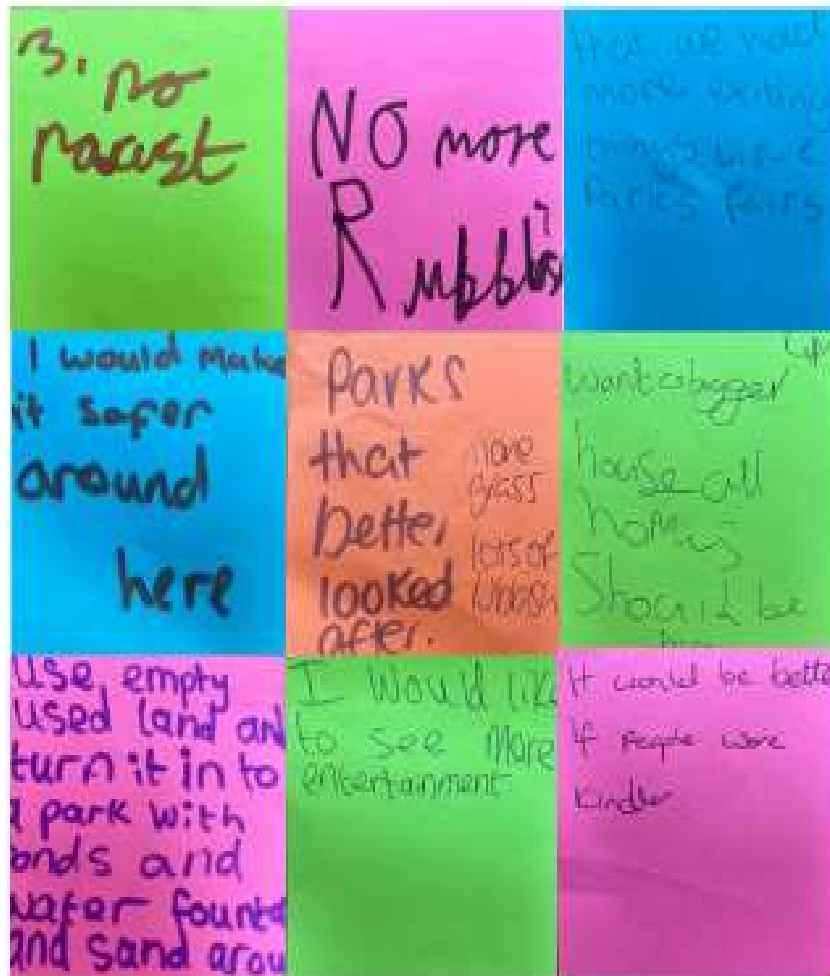 3. no
racist
NO more
Rubbis
that we had
more exiting
things like
Parks fairs
I would make
it safer
around
here
Parks
that
better
looked
after.
more
grass
lots of
rubbish
want a bigger
house all
homes
Should be
use empty
used land and
turn it in to
a park with
onds and
water founta
and sand arou
I would like
to see more
entertainment
It would be bette
if people were
kinder